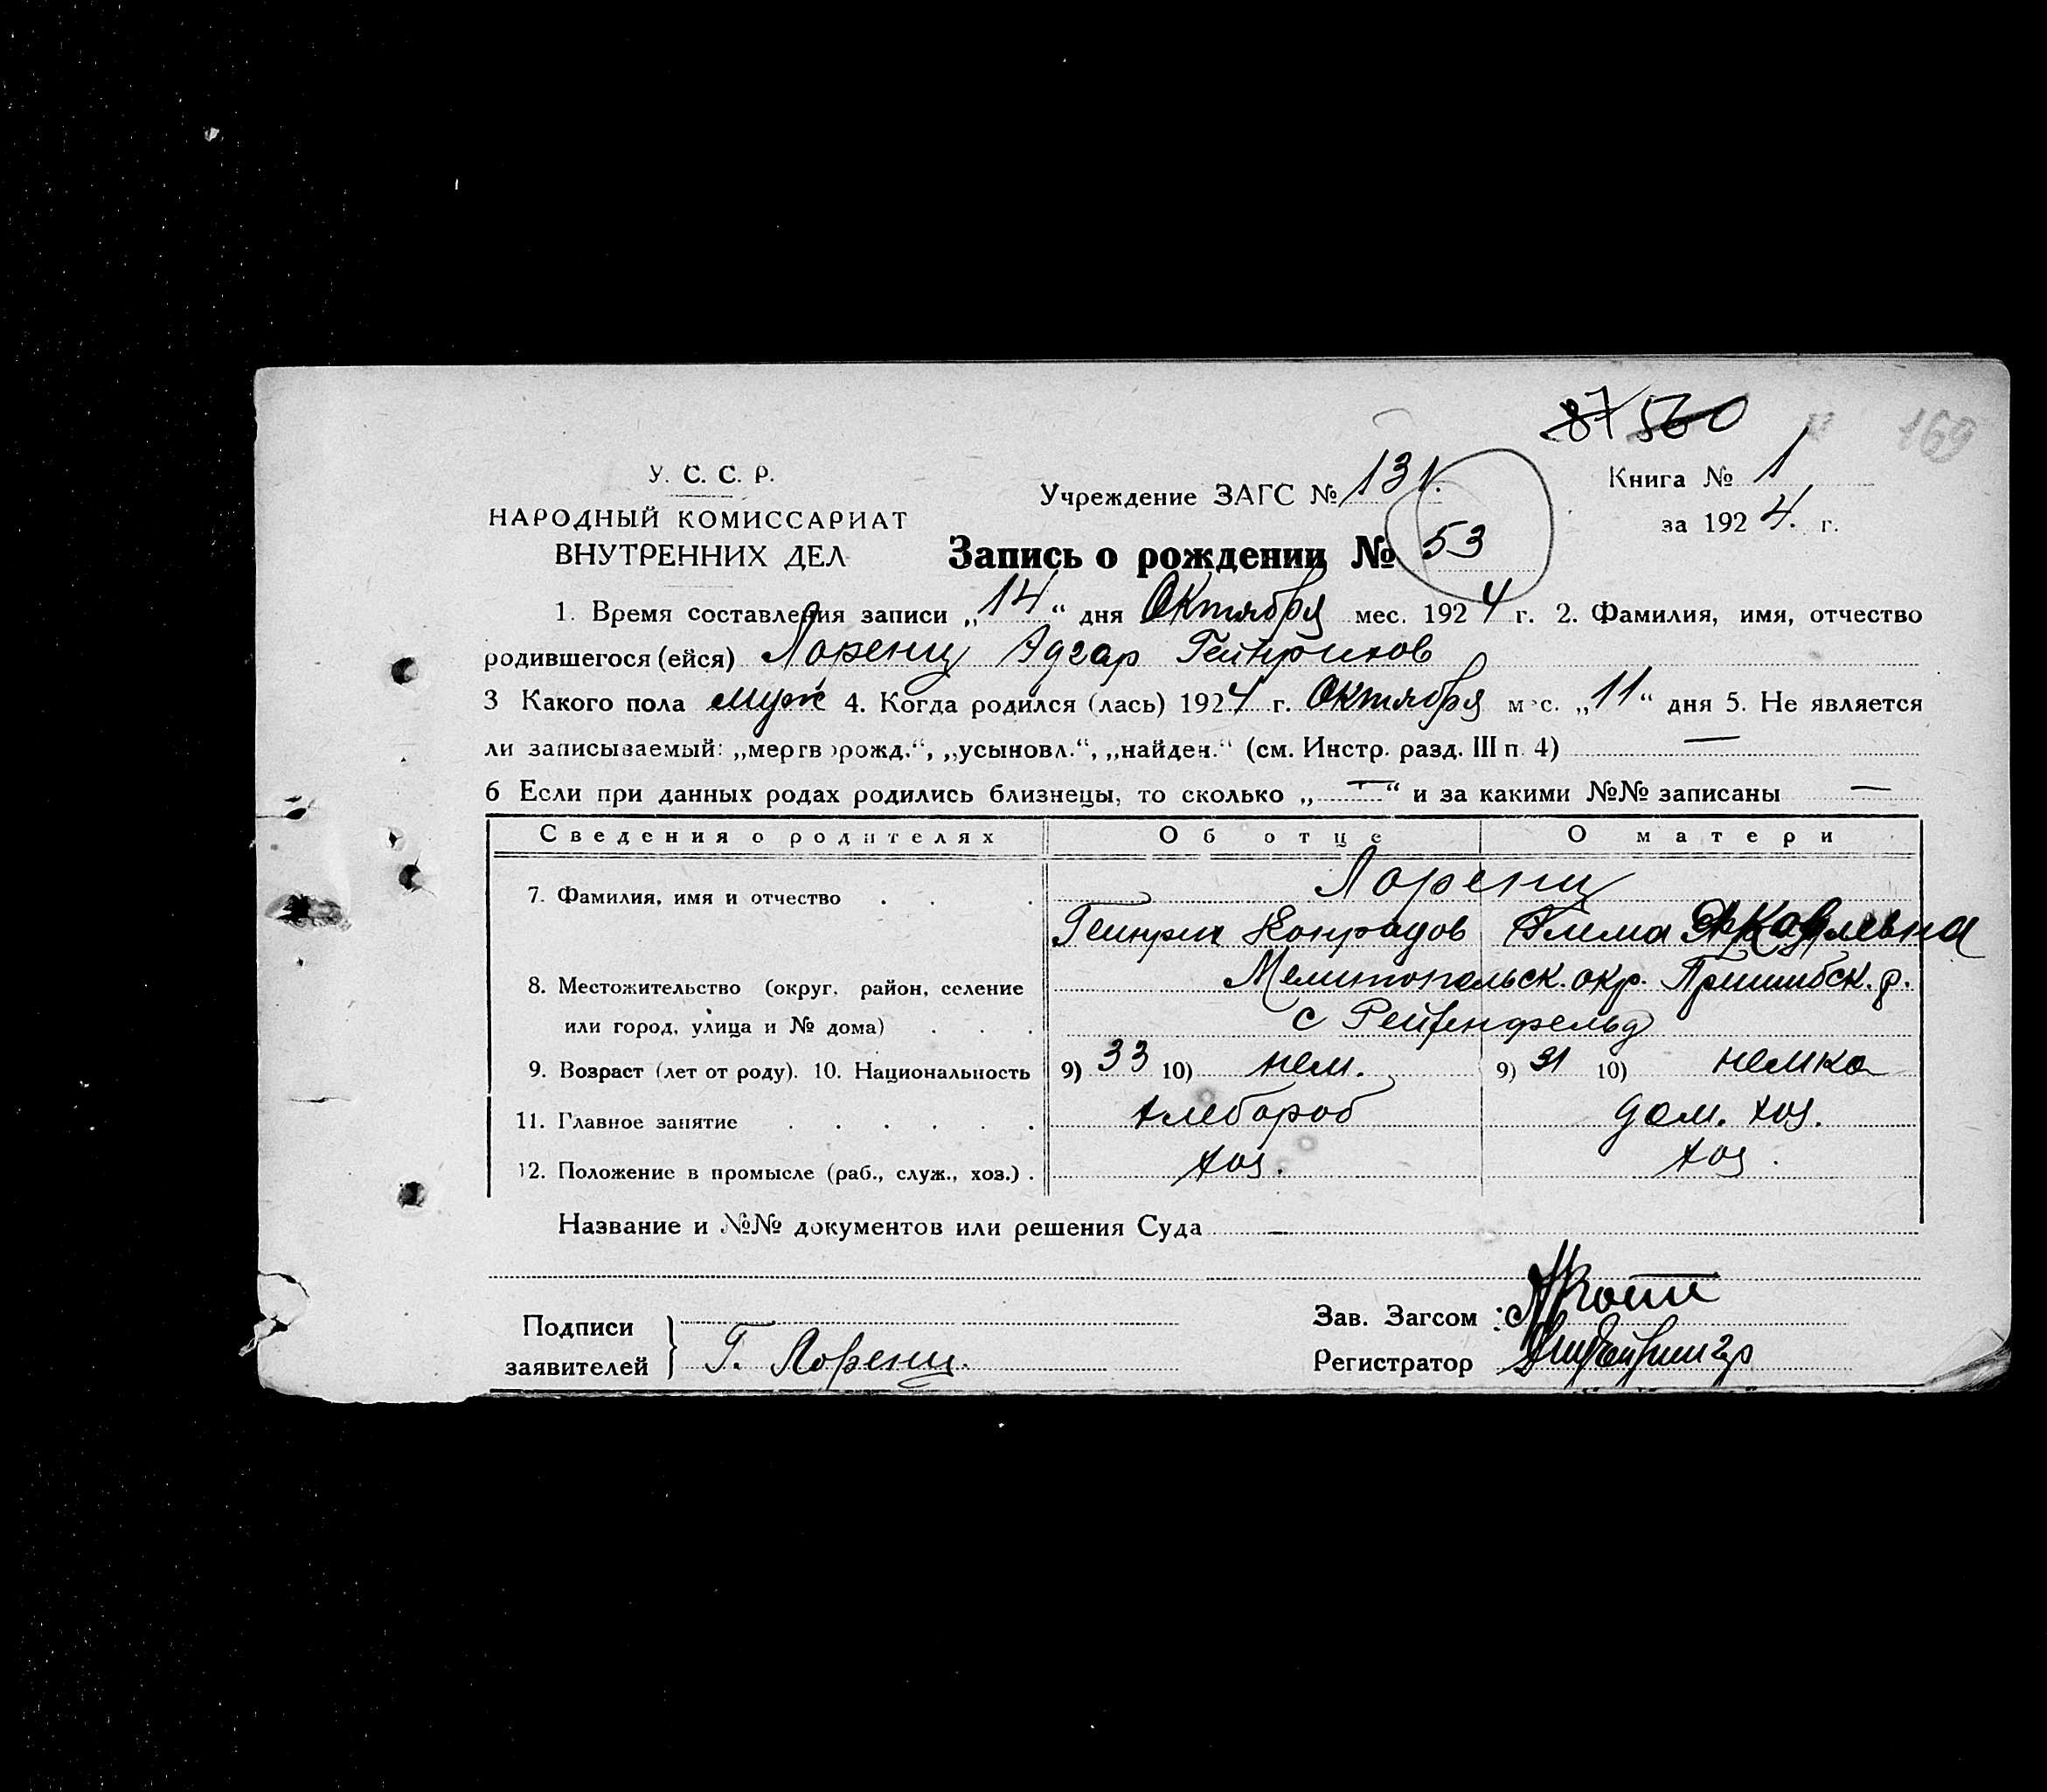 87 560
169
У. С. С. Р.
НАРОДНЫЙ КОМИССАРИАТ
ВНУТРЕННИХ ДЕЛ
Учреждение ЗАГС № 131.
Книга № 1
за 1924. г.
Запись о рождении № 53
1. Время составления записи „14“ дня Октября мес. 1924 г. 2. Фамилия, имя, отчество
родившегося (ейся) Лоренц Эдгар Гейнрихов
3 Какого пола муж 4. Когда родился (лась) 1924 г. Октября мес. „11“ дня 5. Не является
ли записываемый: „мертворожд.“, „усыновл.“, „найден.“ (см. Инстр. разд. III п. 4) —
6 Если при данных родах родились близнецы, то сколько „—“ и за какими №№ записаны —
Сведения о родителях Об отце О матери
7. Фамилия, имя и отчество . . . Лоренц
Гейнрих Конрадов Яковлевна
8. Местожительство (округ, район, селение Мелитопольск. окр. Пришибск. р.
или город, улица и № дома) . . . с Рейхенфельд
9. Возраст (лет от роду). 10. Национальность 9) 33 10) нем. 9) 31 10) немка
11. Главное занятие . . . . . . хлебороб дом. хоз.
12. Положение в промысле (раб., служ., хоз.) . хоз. хоз.
Название и №№ документов или решения Суда —
Подписи
заявителей } Г. Лоренц.
Зав. Загсом :
Регистратор